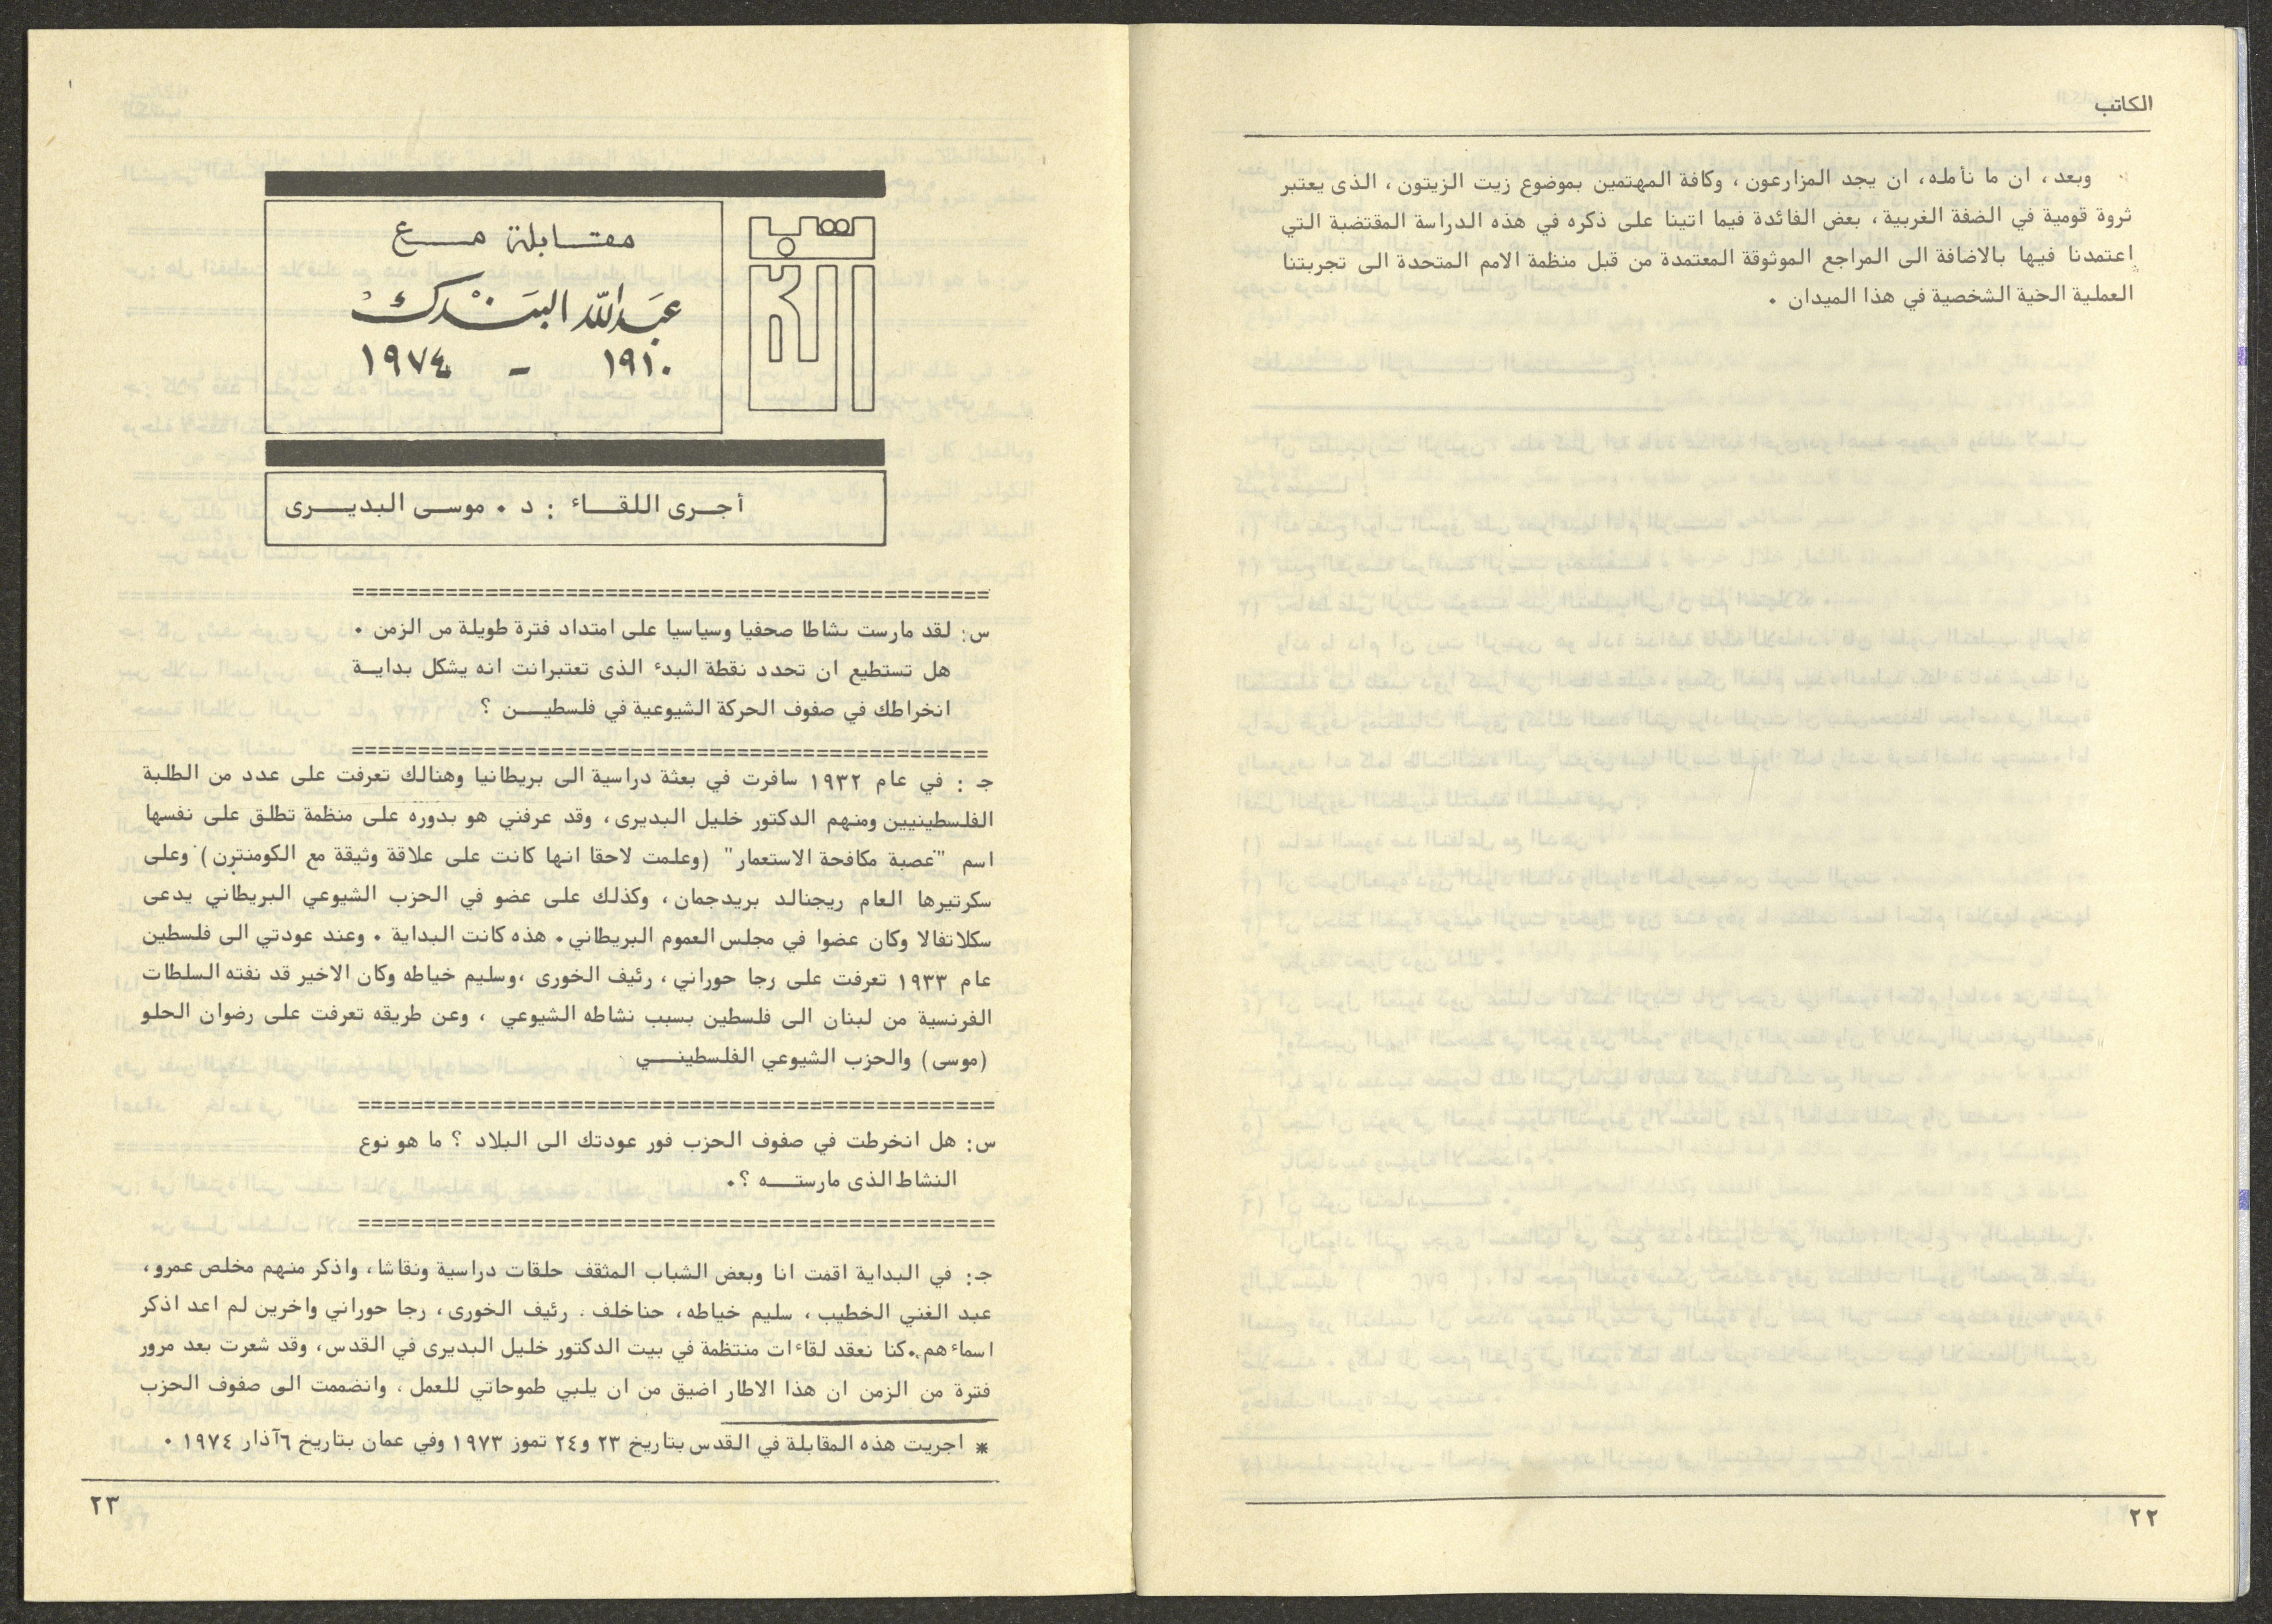 الكاتب
وبعد، ان ما نأمله، ان يجد المزارعون، وكافة المهتمين بموضوع زيت الزيتون، الذى يعتبر
ثروة قومية في الضفة الغربية، بعض الفائدة فيما اتينا على ذكره في هذه الدراسة المقتضبة التي
اعتمدنا فيها بالاضافة الى المراجع الموثوقة المعتمدة من قبل منظمة الامم المتحدة الى تجربتنا
العملية الخية الشخصية في هذا الميدان •
٢٢
الكاتب
مقابلة مع
عبد الله البندك
١٩١٠ - ١٩٧٤
أجرى اللقاء : د • موسى البديرى
س: لقد مارست نشاطا صحفيا وسياسيا على امتداد فترة طويلة من الزمن •
هل تستطيع ان تحدد نقطة البدء الذى تعتبرانت انه يشكل بداية
انخراطك في صفوف الحركة الشيوعية في فلسطين ؟
جـ : في عام ١٩٣٢ سافرت في بعثة دراسية الى بريطانيا وهنالك تعرفت على عدد من الطلبة
الفلسطينيين ومنهم الدكتور خليل البديرى، وقد عرفني هو بدوره على منظمة تطلق على نفسها
اسم "عصبة مكافحة الاستعمار" (وعلمت لاحقا انها كانت على علاقة وثيقة مع الكومنترن) وعلى
سكرتيرها العام ريجنالد بريدجمان، وكذلك على عضو في الحزب الشيوعي البريطاني يدعى
سكلاتفالا وكان عضوا في مجلس العموم البريطاني• هذه كانت البداية • وعند عودتي الى فلسطين
عام ١٩٣٣ تعرفت على رجا حوراني، رئيف الخورى ،وسليم خياطه وكان الاخير قد نفته السلطات
الفرنسية من لبنان الى فلسطين بسبب نشاطه الشيوعي ، وعن طريقه تعرفت على رضوان الحلو
(موسى) والحزب الشيوعي الفلسطيني
س: هل انخرطت في صفوف الحزب فور عودتك الى البلاد ؟ ما هو نوع
النشاط الذى مارسته ؟•
جـ: في البداية اقمت انا وبعض الشباب المثقف حلقات دراسية ونقاشا، واذكر منهم مخلص عمرو،
عبد الغني الخطيب، سليم خياطه، حناخلف. رئيف الخورى، رجا حوراني واخرين لم اعد اذكر
اسماءهم•كنا نعقد لقاءات منتظمة في بيت الدكتور خليل البديرى في القدس، وقد شعرت بعد مرور
فترة من الزمن ان هذا الاطار اضيق من ان يلبي طموحاتي للعمل، وانضممت الى صفوف الحزب
* اجريت هذه المقابلة في القدس بتاريخ ٢٣ و٢٤ تموز ١٩٧٣ وفي عمان بتاريخ ٦آذار ١٩٧٤ •
٢٣